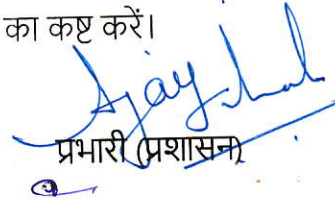 का कष्ट करें।
Ajay
प्रभारी (प्रशासन)